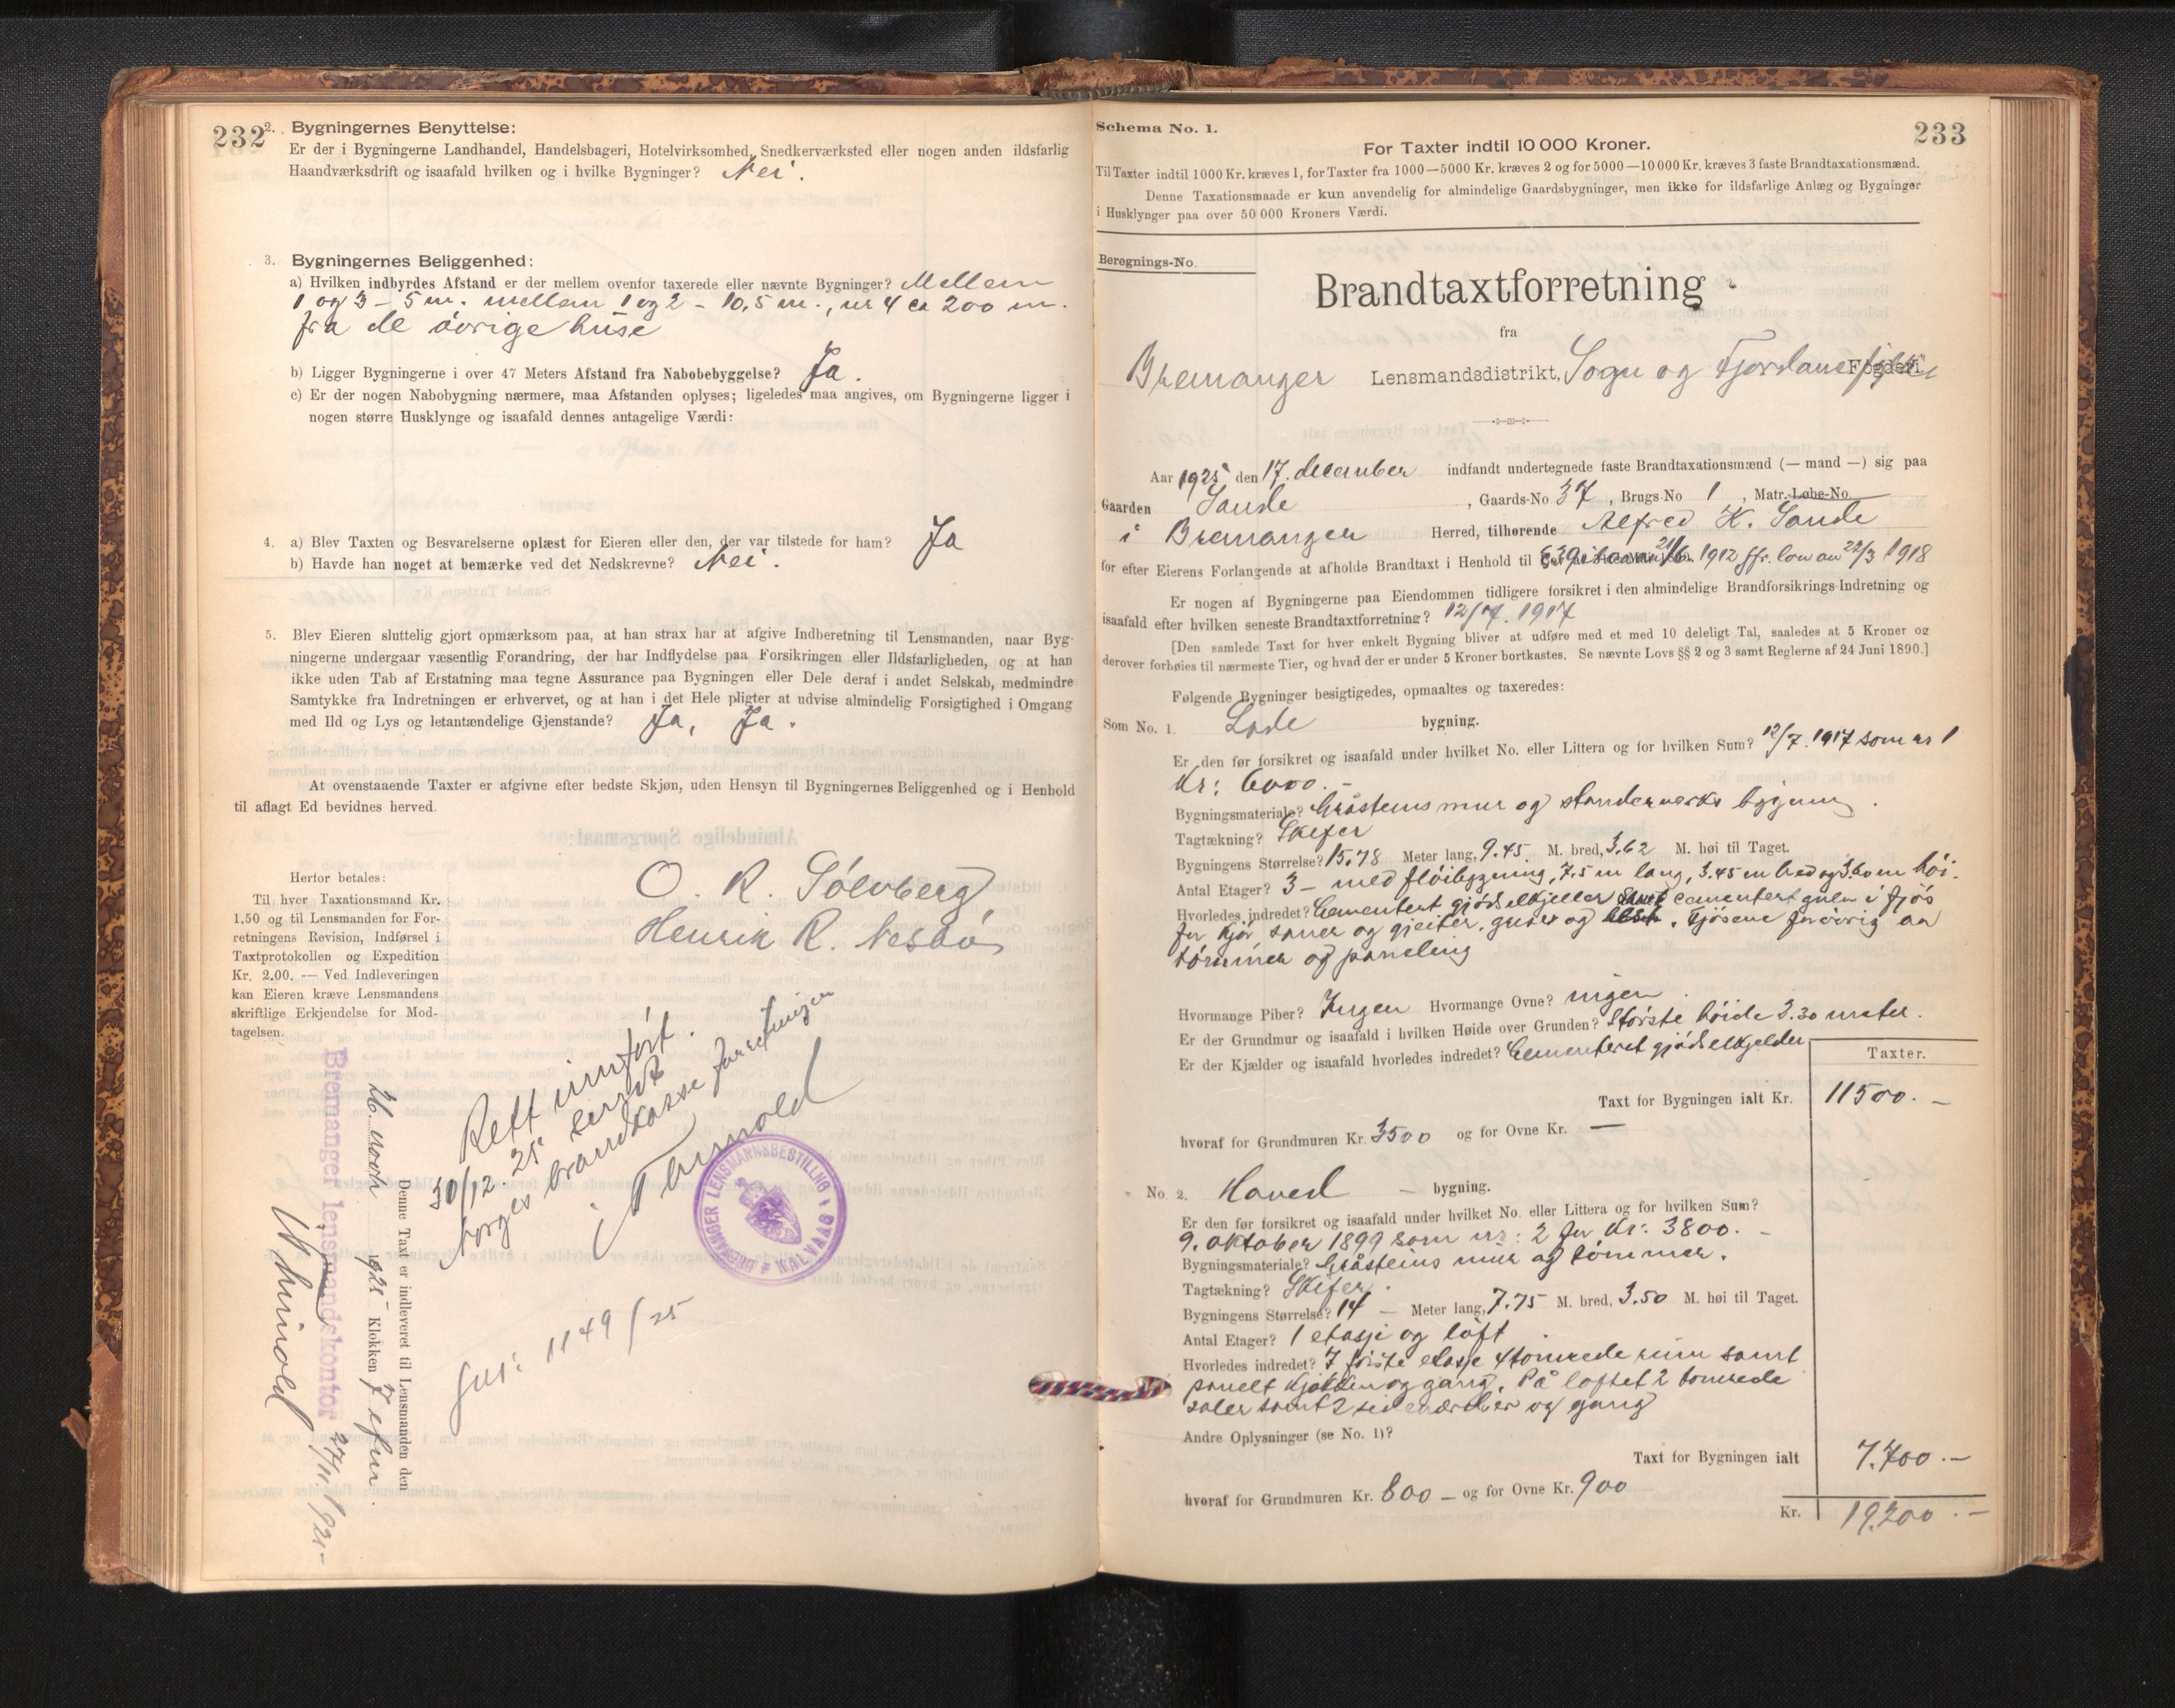 232
2. Bygningernes Benyttelse:
Er der i Bygningerne Landhandel, Handelsbageri, Hotelvirksomhed, Snedkerværksted eller nogen anden ildsfarlig
Haandværksdrift og isaafald hvilken og i hvilke Bygninger? Nei.
3. Bygningernes Beliggenhed:
a) Hvilken indbyrdes Afstand er der mellem ovenfor taxerede eller nævnte Bygninger? Mellem
1 og 3 – 5 m. mellem 1 og 2 – 10,5 m., nr 4 ca 200 m.
fra de övrige huse
b) Ligger Bygningerne i over 47 Meters Afstand fra Nabobebyggelse? Ja.
c) Er der nogen Nabobygning nærmere, maa Afstanden oplyses; ligeledes maa angives, om Bygningerne ligger i
nogen større Husklynge og isaafald dennes antagelige Værdi:
4. a) Blev Taxten og Besvarelserne oplæst for Eieren eller den, der var tilstede for ham? Ja
b) Havde han noget at bemærke ved det Nedskrevne? Nei.
5. Blev Eieren sluttelig gjort opmærksom paa, at han strax har at afgive Indberetning til Lensmanden, naar Byg-
ningerne undergaar væsentlig Forandring, der har Indflydelse paa Forsikringen eller Ildsfarligheden, og at han
ikke uden Tab af Erstatning maa tegne Assurance paa Bygningen eller Dele deraf i andet Selskab, medmindre
Samtykke fra Indretningen er erhvervet, og at han i det Hele pligter at udvise almindelig Forsigtighed i Omgang
med Ild og Lys og letantændelige Gjenstande? Ja, Ja.
At ovenstaaende Taxter er afgivne efter bedste Skjøn, uden Hensyn til Bygningernes Beliggenhed og i Henhold
til aflagt Ed bevidnes herved.
O. R. Sölvberg
Henrik R. Nesbö
Herfor betales:
Til hver Taxationsmand Kr.
1,50 og til Lensmanden for For-
retningens Revision, Indførsel i
Taxtprotokollen og Expedition
Kr. 2,00. — Ved Indleveringen
kan Eieren kræve Lensmandens
skriftlige Erkjendelse for Mod-
tagelsen.
Rett innfört.
30/12. 25 sendt
Norges brandkasse forretningen
BREMANGER LENSMANNSBESTILLNG
KALVAAG
Jnr: 1149/25
Denne Taxt er indleveret til Lensmanden den
1925 Klokken 7 efm.
Bremanger lensmandskontor
Schema No. 1.
233
For Taxter indtil 10 000 Kroner.
Til Taxter indtil 1000 Kr. kræves 1, for Taxter fra 1000—5000 Kr. kræves 2 og for 5000—10 000 Kr. kræves 3 faste Brandtaxationsmænd.
Denne Taxationsmaade er kun anvendelig for almindelige Gaardsbygninger, men ikke for ildsfarlige Anlæg og Bygninger
i Husklynger paa over 50 000 Kroners Værdi.
Beregnings-No.
Brandtaxtforretning
fra
Bremanger Lensmandsdistrikt, Sogn og Fjordane fylke Fogderi.
Aar 1925 den 17. december indfandt undertegnede faste Brandtaxationsmænd (— mand —) sig paa
Gaarden Sande, Gaards-No 37, Brugs-No 1, Matr.-Løbe-No.
i Bremanger Herred, tilhørende Alfred K. Sande
for efter Eierens Forlangende at afholde Brandtaxt i Henhold til § 39 i lov av 21/6 1912 jfr. lov av 22/3 1918
Er nogen af Bygningerne paa Eiendommen tidligere forsikret i den almindelige Brandforsikrings-Indretning og
isaafald efter hvilken seneste Brandtaxtforretning? 12/7. 1917
[Den samlede Taxt for hver enkelt Bygning bliver at udføre med et med 10 deleligt Tal, saaledes at 5 Kroner og
derover forhøies til nærmeste Tier, og hvad der er under 5 Kroner bortkastes. Se nævnte Lovs §§ 2 og 3 samt Reglerne af 24 Juni 1890.]
Følgende Bygninger besigtigedes, opmaaltes og taxeredes:
Som No. 1. Lade bygning.
Er den før forsikret og isaafald under hvilket No. eller Littera og for hvilken Sum? 12/7. 1917 som nr 1
Kr: 6000.–
Bygningsmateriale? Gråsteins mur og standerverks bygning.
Tagtækning? Skifer
Bygningens Størrelse? 15.78 Meter lang, 9.45 M. bred, 3.62 M. høi til Taget.
Antal Etager? 3 – med flöibygning, 7.5 m lang, 3.45 m bred og 3.60 m höi.
Hvorledes indredet? Cementert gjödselkjeller samt cementert gulv i fjös
for kjör, sauer og gjeiter, griser og hest. Fjösene forövrig av
tömmer og paneling
Hvormange Piber? Ingen Hvormange Ovne? ingen.
Er der Grundmur og isaafald i hvilken Høide over Grunden? Störste höide 3.30 meter.
Er der Kjælder og isaafald hvorledes indredet? Cementeret gjödselkjelder
Taxter.
Taxt for Bygningen ialt Kr. 11500.–
hvoraf for Grundmuren Kr. 3500 og for Ovne Kr. —
No. 2. Havesl – bygning.
Er den før forsikret og isaafald under hvilket No. eller Littera og for hvilken Sum?
9. oktober 1899 som nr: 2 for Kr: 3800.–
Bygningsmateriale? Gråsteins mur og tömmer.
Tagtækning? Skifer.
Bygningens Størrelse? 14 – Meter lang, 7.75 M. bred, 3.50 M. høi til Taget.
Antal Etager? 1 etasje og loft.
Hvorledes indredet? I förste etasje 4 tömrede rum samt
panelt kjökken og gang. På loftet 2 tömrede
saler samt 2 og gang
Andre Oplysninger (se No. 1)?
Taxt for Bygningen ialt 7.700.–
hvoraf for Grundmuren Kr. 800 – og for Ovne Kr. 900
Kr. 19,200.–